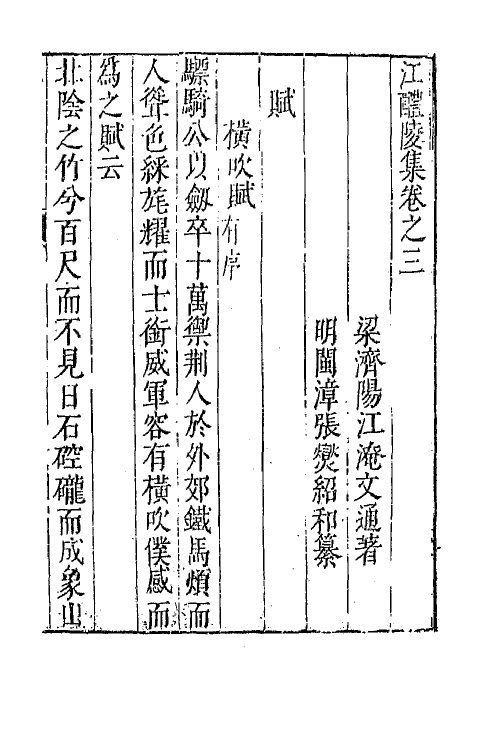 江醴陵集卷之三
梁濟陽江淹文通著
明閩漳張燮紹和纂
賦
橫吹賦有序
驃騎公以劔卒十萬禦荆人於外郊鐵馬煩而
人聳色綵旄耀而士銜威軍容有橫吹僕感而
爲之賦云
北陰之竹兮百尺而不見日石硿礲而成象山